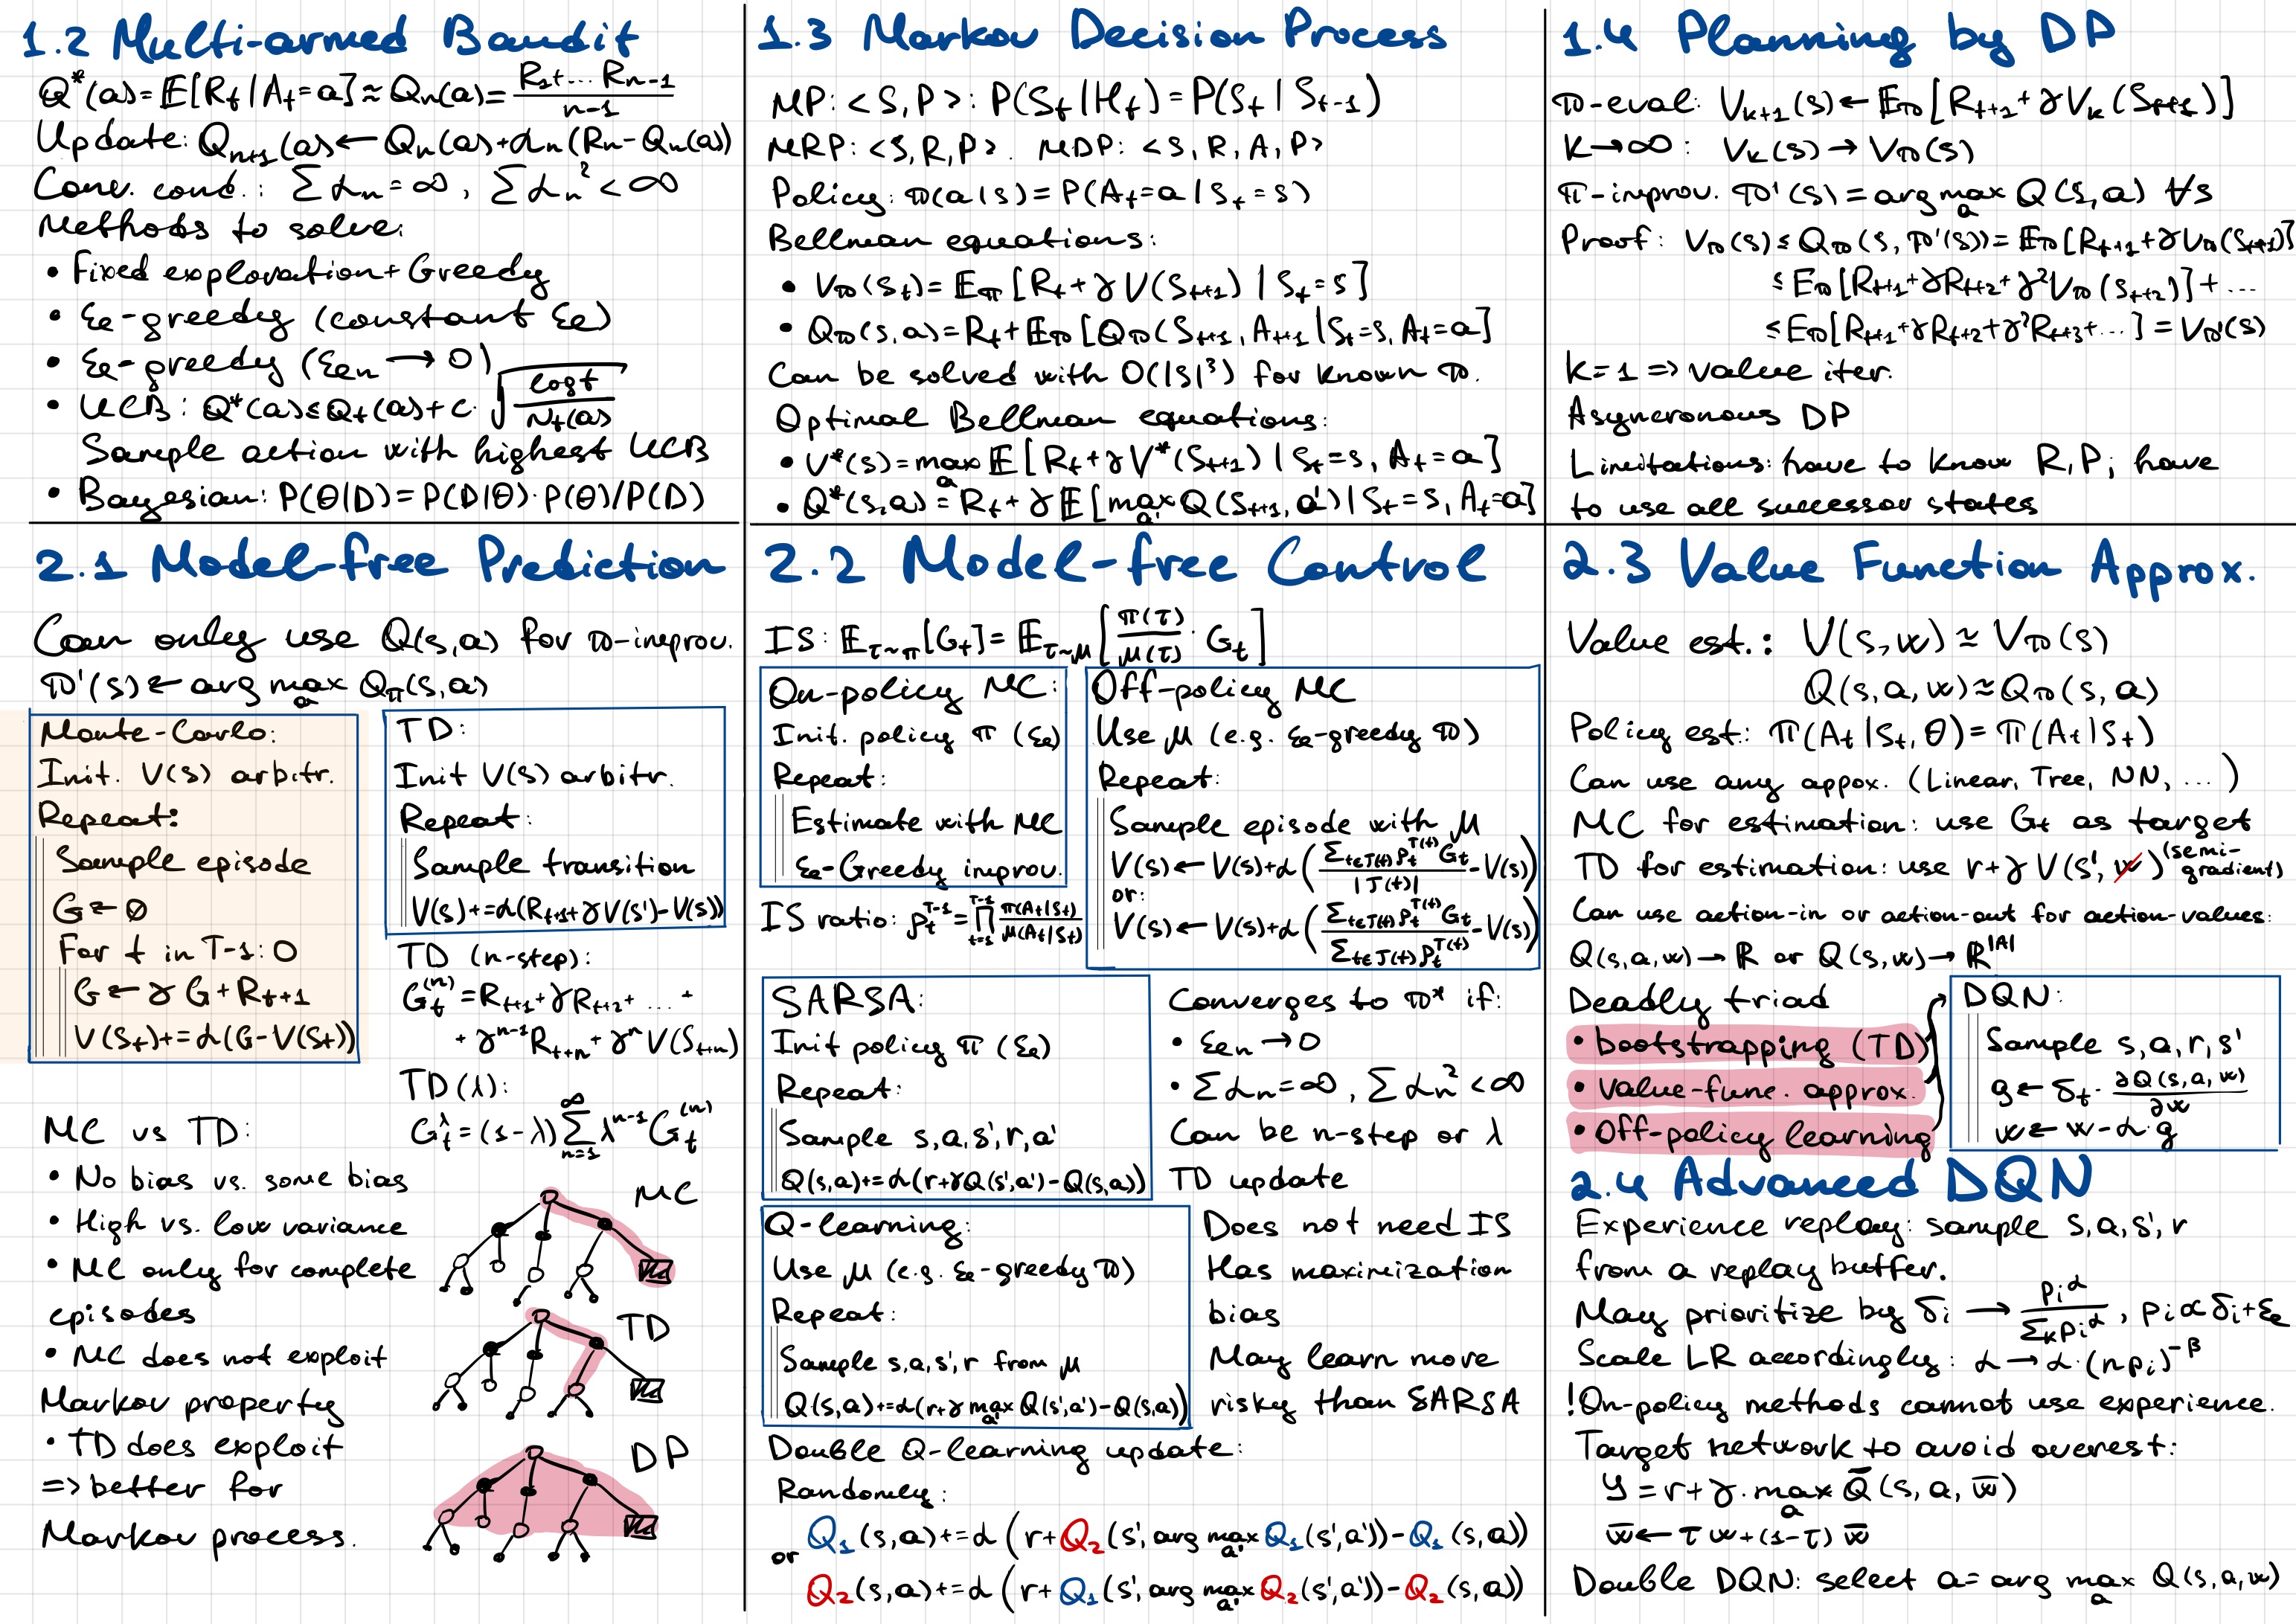 1.2 Multi-armed Bandit
Q*(a)=𝔼[R_t|A_t=a]≈Q_n(a)=(R_1+...R_{n-1})/(n-1)
Update: Q_{n+1}(a)←Q_n(a)+α_n(R_n-Q_n(a))
Conv. cond.: Σα_n=∞, Σα_n²<∞
Methods to solve:
• Fixed exploration+Greedy
• εe-greedy (constant εe)
• εe-greedy (εe_n→0)
• UCB: Q*(a)≤Q_t(a)+c·√(log t/N_t(a))
Sample action with highest UCB
• Bayesian: P(θ|D)=P(D|θ)·P(θ)/P(D)
1.3 Markov Decision Process
MP: <S,P>: P(S_t|H_t)=P(S_t|S_{t-1})
MRP: <S,R,P>. MDP: <S,R,A,P>
Policy: π(a|s)=P(A_t=a|S_t=s)
Bellman equations:
• V_π(s_t)=𝔼_π[R_t+γV(S_{t+1})|S_t=s]
• Q_π(s,a)=R_t+𝔼_π[Q_π(S_{t+1},A_{t+1}|S_t=s,A_t=a]
Can be solved with O(|S|³) for known π.
Optimal Bellman equations:
• V*(s)=max_a 𝔼[R_t+γV*(S_{t+1})|S_t=s,A_t=a]
• Q*(s,a)=R_t+γ𝔼[max_{a'} Q(S_{t+1},a')|S_t=s,A_t=a]
1.4 Planning by DP
π-eval: V_{k+1}(s)←𝔼_π[R_{t+1}+γV_k(S_{t+1})]
k→∞: V_k(s)→V_π(s)
π-improv. π'(s)=arg max_a Q(s,a) ∀s
Proof: V_π(s)≤Q_π(s,π'(s))=𝔼_π[R_{t+1}+γV_π(S_{t+1})]
≤𝔼_π[R_{t+1}+γR_{t+2}+γ²V_π(S_{t+2})]+...
≤𝔼_π[R_{t+1}+γR_{t+2}+γ²R_{t+3}+...]=V_π'(s)
k=1 => value iter.
Asyncronous DP
Limitations: have to know R,P; have
to use all successor states
2.1 Model-free Prediction
Can only use Q(s,a) for π-improv.
π'(s)←arg max_a Q_π(s,a)
Monte-Carlo:
Init. V(s) arbitr.
Repeat:
Sample episode
G←0
For t in T-1:0
G←γG+R_{t+1}
V(S_t)+=α(G-V(S_t))
TD:
Init V(s) arbitr.
Repeat:
Sample transition
V(s)+=α(R_{t+1}+γV(s')-V(s))
TD (n-step):
G_t^{(n)}=R_{t+1}+γR_{t+2}+...+
+γ^{n-1}R_{t+n}+γ^nV(S_{t+n})
TD(λ):
G_t^λ=(1-λ)Σ_{n=1}^∞ λ^{n-1}G_t^{(n)}
MC vs TD:
• No bias vs. some bias
• High vs. low variance
• MC only for complete
episodes
• MC does not exploit
Markov property
• TD does exploit
=> better for
Markov process.
MC
TD
DP
2.2 Model-free Control
IS: 𝔼_{τ~π}[G_t]=𝔼_{τ~μ}[π(τ)/μ(τ)·G_t]
On-policy MC:
Init. policy π (εe)
Repeat:
Estimate with MC
εe-Greedy improv.
IS ratio: ρ_t^{T-1}=∏_{t=1}^{T-1} π(A_t|S_t)/μ(A_t|S_t)
Off-policy MC
Use μ (e.g. εe-greedy π)
Repeat:
Sample episode with μ
V(s)←V(s)+α(Σ_{t∈J(t)}ρ_t^{T(t)}G_t/|J(t)|-V(s))
or:
V(s)←V(s)+α(Σ_{t∈J(t)}ρ_t^{T(t)}G_t/Σ_{t∈J(t)}ρ_t^{T(t)}-V(s))
SARSA:
Init policy π (εe)
Repeat:
Sample s,a,s',r,a'
Q(s,a)+=α(r+γQ(s',a')-Q(s,a))
Converges to π* if:
• εe_n→0
• Σα_n=∞, Σα_n²<∞
Can be n-step or λ
TD update
Q-learning:
Use μ (e.g. εe-greedy π)
Repeat:
Sample s,a,s',r from μ
Q(s,a)+=α(r+γ max_{a'} Q(s',a')-Q(s,a))
Does not need IS
Has maximization
bias
May learn more
risky than SARSA
Double Q-learning update:
Randomly:
Q_1(s,a)+=α(r+Q_2(s',arg max_{a'} Q_1(s',a'))-Q_1(s,a))
or
Q_2(s,a)+=α(r+Q_1(s',arg max_{a'} Q_2(s',a'))-Q_2(s,a))
2.3 Value Function Approx.
Value est.: V(s,w)≈V_π(s)
Q(s,a,w)≈Q_π(s,a)
Policy est.: π(A_t|S_t,θ)=π(A_t|S_t)
Can use any appox. (Linear, Tree, NN, ...)
MC for estimation: use G_t as target
TD for estimation: use r+γV(s',w) (semi-gradient)
Can use action-in or action-out for action-values:
Q(s,a,w)→ℝ or Q(s,w)→ℝ^{|A|}
Deadly triad
• bootstrapping (TD)
• value-func. approx.
• Off-policy learning
DQN:
Sample s,a,r,s'
g←δ_t·∂Q(s,a,w)/∂w
w←w-α·g
2.4 Advanced DQN
Experience replay: sample s,a,s',r
from a replay buffer.
May prioritize by δ_i→p_i^α/Σ_k p_i^α, p_i∝δ_i+εe
Scale LR accordingly: α→α·(np_i)^{-β}
!On-policy methods cannot use experience.
Target network to avoid overest:
y=r+γ·max_a Q̄(s,a,w̄)
w̄←τw+(1-τ)w̄
Double DQN: select a=arg max_a Q(s,a,w)